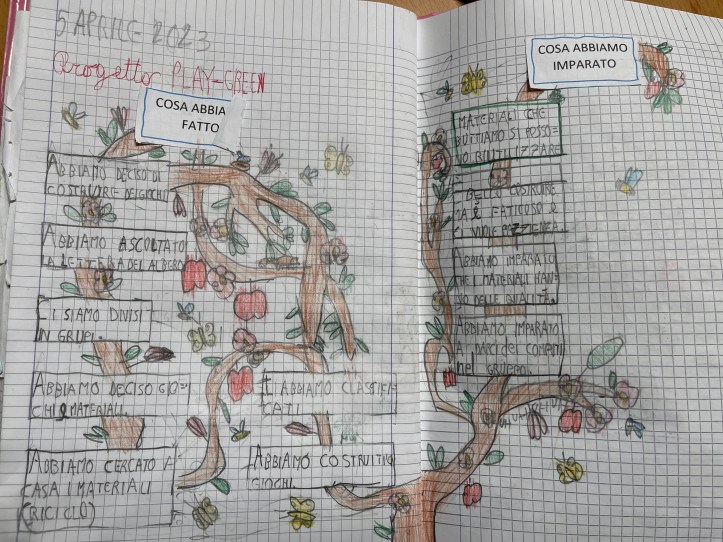 5 APRILE 2023
Progetto PLAY-GREEN
COSA ABBIA
FATTO
ABBIAMO DECISO DI
COSTRUIRE DEI GIOCHI
ABBIAMO ASCOLTATO
LA LETTERA DEL ALBERO
CI SIAMO DIVISI
IN GRUPI.
ABBIAMO DECISO GIO=
CHI E MATERIALI.
ABBIAMO CERCATO A
CASA I MATERIALI
(RICICLO)
LI ABBIAMO CLASSIFI=
CATI
ABBIAMO COSTRUITO I
GIOCHI.
COSA ABBIAMO
IMPARATO
MATERIALI CHE
BUTTIAMO SI POSSO=
NO RIUTILIZZARE
BELLO COSTRUIRE
MA È FATICOSO E
CI VUOLE PAZIENZA.
ABBIAMO IMPARATO
CHE I MATERIALI HAN=
NO DELLE QUALITÀ.
ABBIAMO IMPARATO
A DARCI DEI COMPITI
NEL GRUPPO.